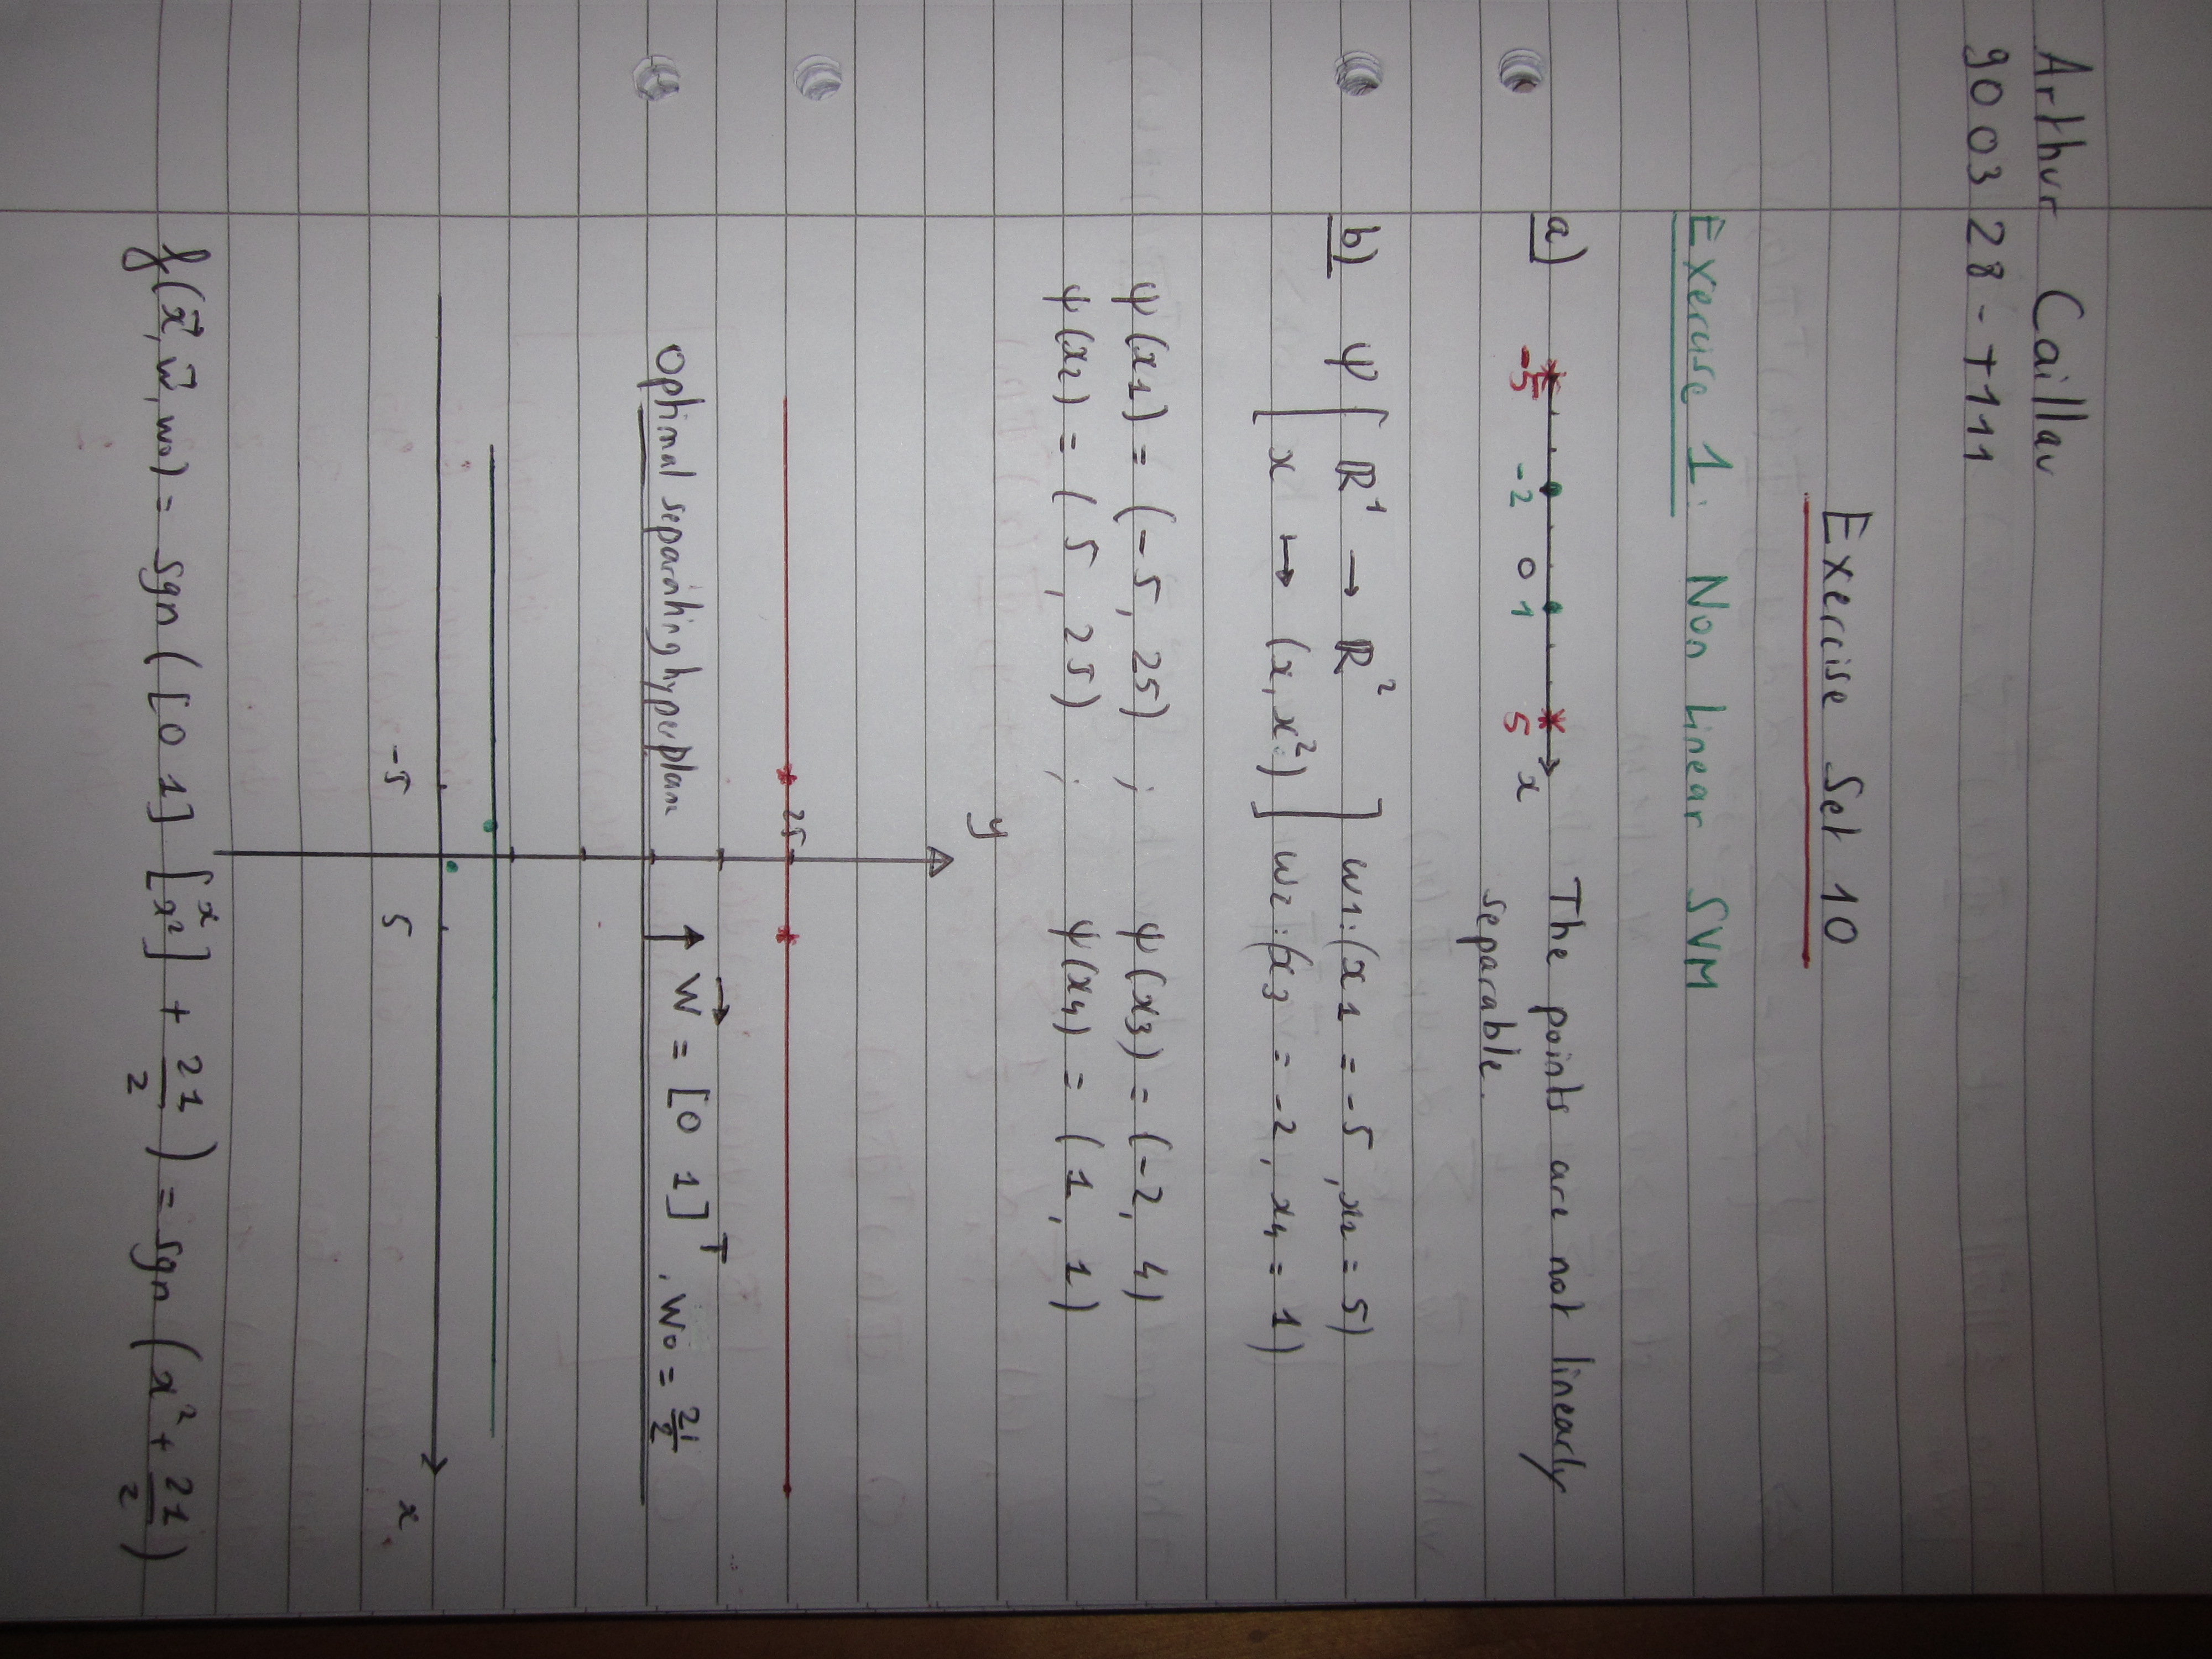 Arthur Caillau
900328-T111
Exercise Set 10
Exercise 1: Non Linear SVM
a) -5 -2 0 1 5 x The points are not linearly
separable.
b) ψ [ ℝ¹ → ℝ² ] w1:(x1 = -5, x2 = 5)
[ x ↦ (x, x²) ] w2:(x3 = -2, x4 = 1)
ψ(x1) = (-5, 25) ; ψ(x3) = (-2, 4)
ψ(x2) = (5, 25) ; ψ(x4) = (1, 1)
y
25
Optimal separating hyperplan w⃗ = [0 1]ᵀ, w0 = 21/2
-5 5 x
f(x⃗, w⃗, w0) = sgn([0 1] [x x²] + 21/2) = sgn(x² + 21/2)